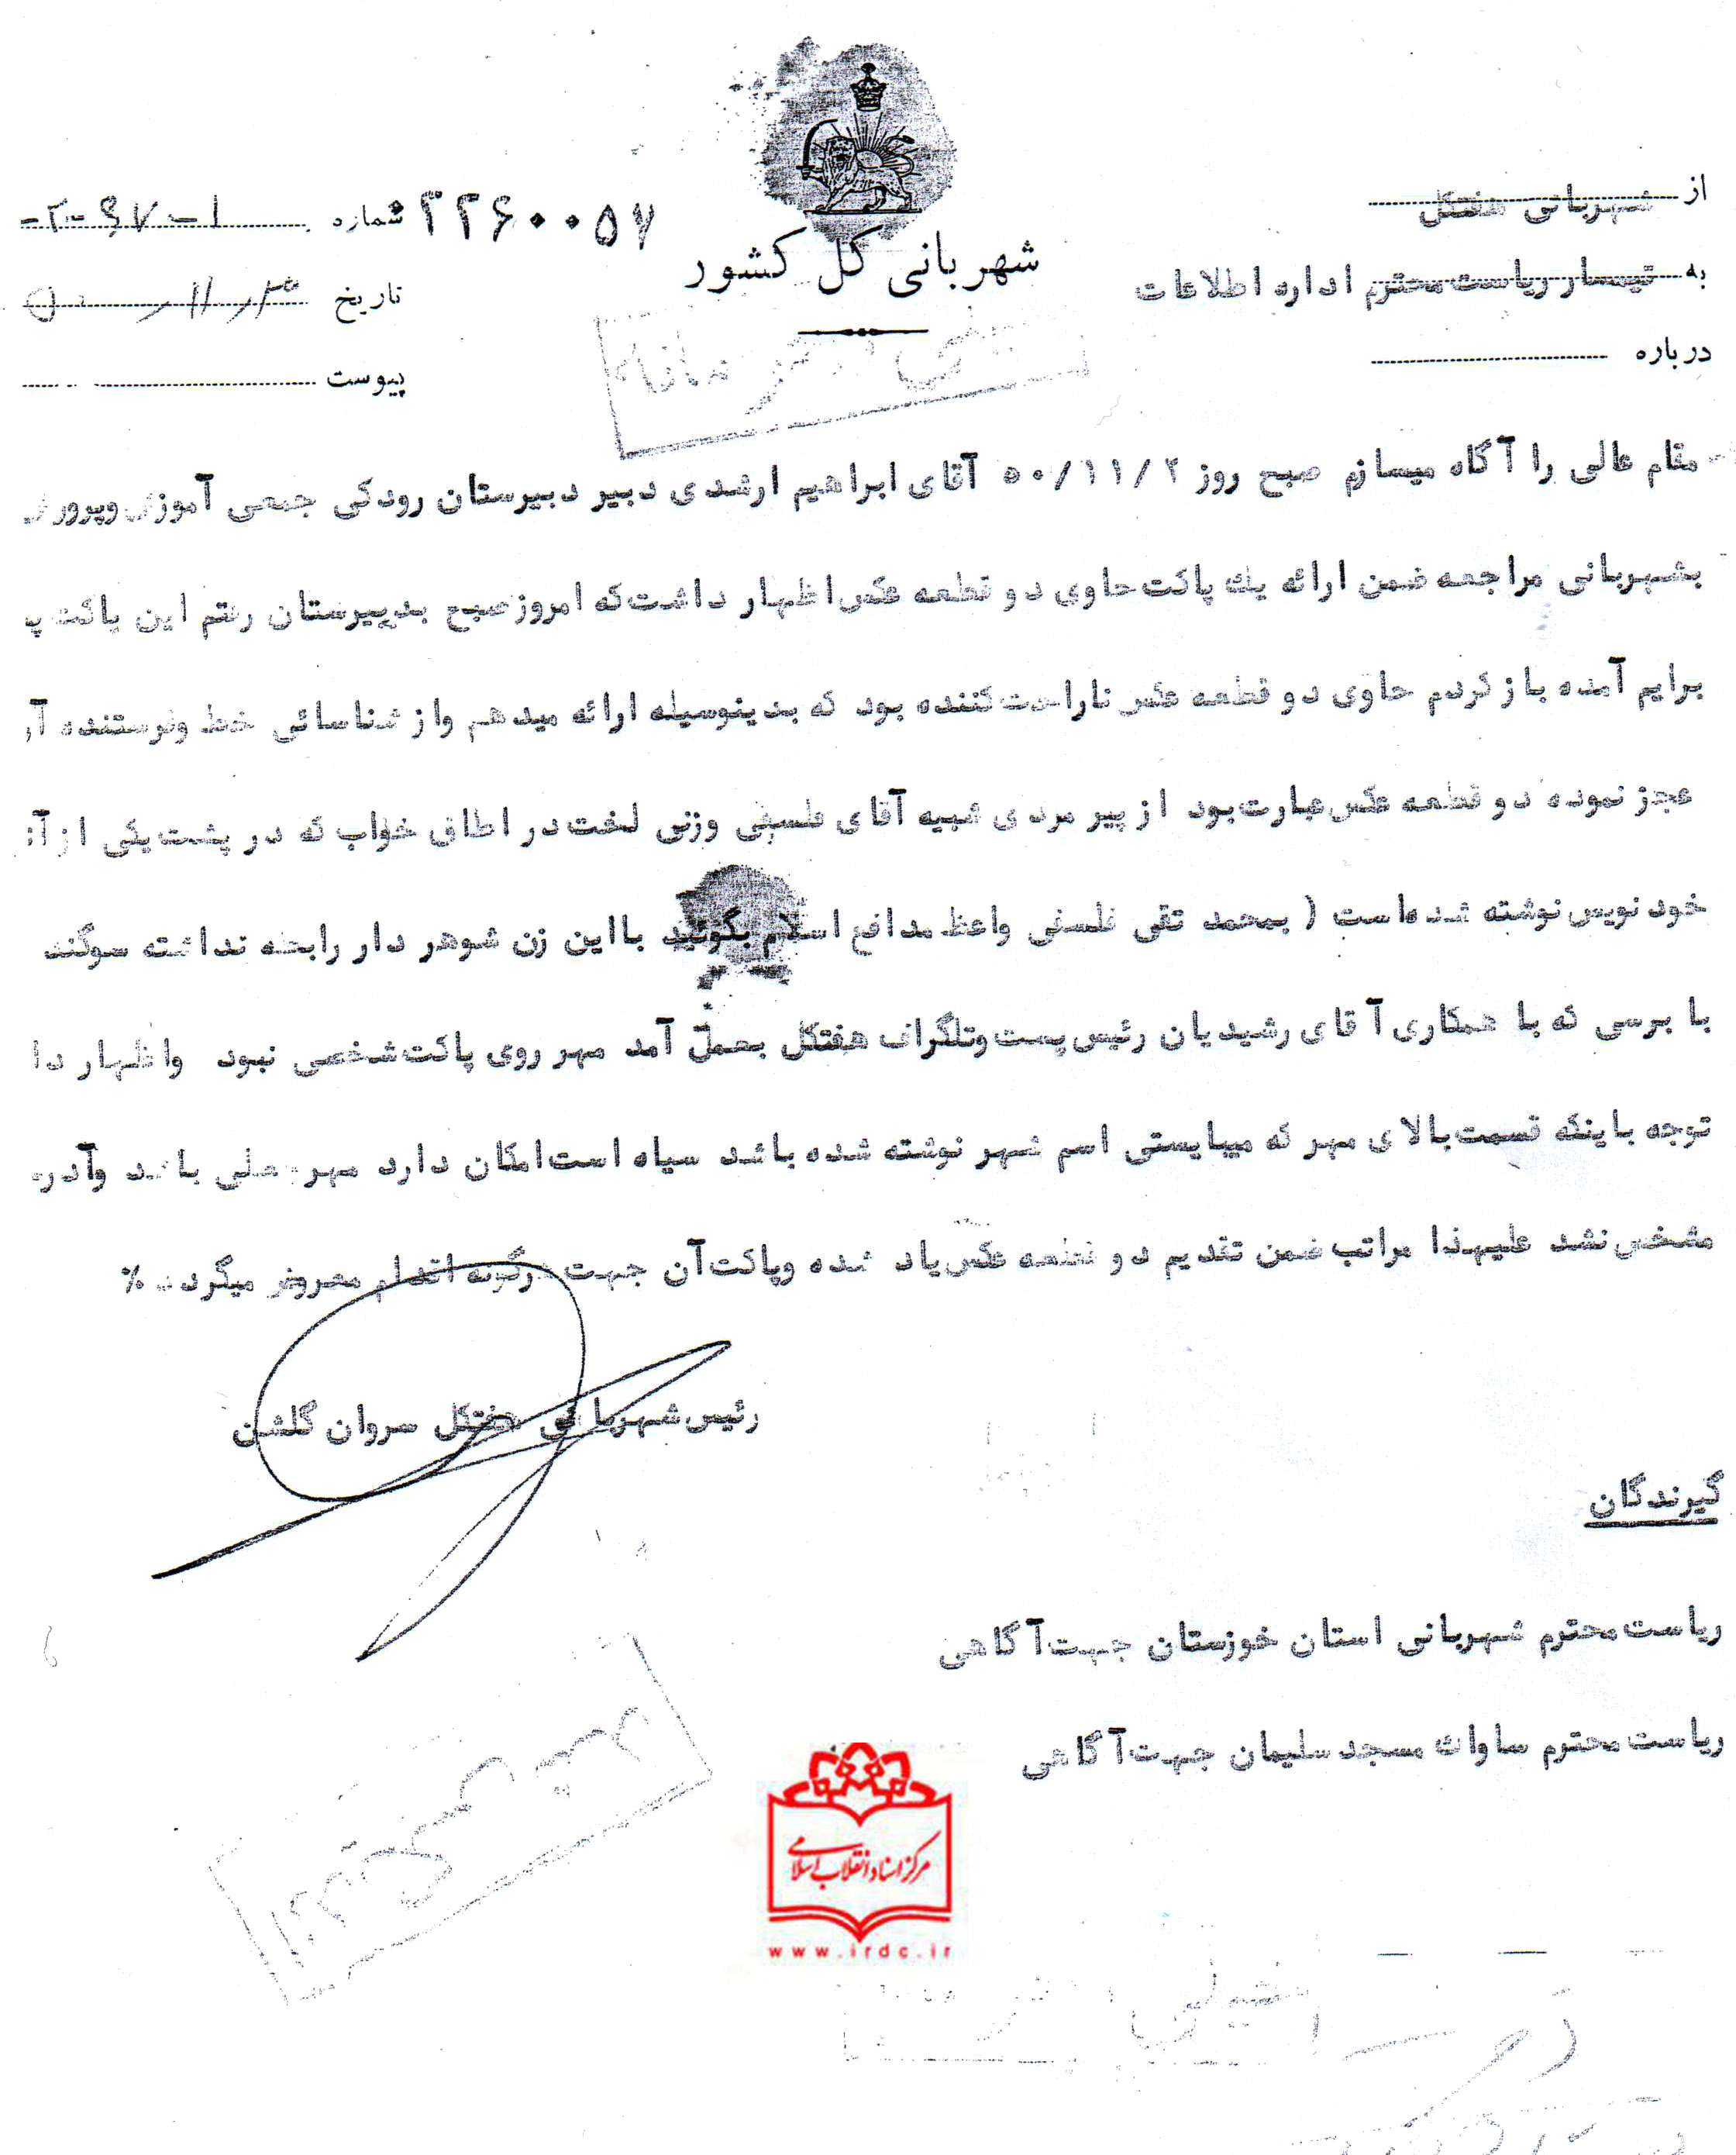 از شهربانی هفتکل
به تیمسار ریاست محترم اداره اطلاعات
درباره
شهربانی کل کشور
۰۲۲۶۰۰۵۷
شماره
تاریخ
پیوست
مقام عالی را آگاه میسازم صبح روز ۵۰/۱۱/۲ آقای ابراهیم ارشدی دبیر دبیرستان رودکی جمعی آموزش وپرورش
بشهربانی مراجعه ضمن ارائه یك پاکت حاوی دو قطعه عکس اظهار داشت که امروز صبح بدبیرستان رفتم این پاکت
برایم آمده باز کردم حاوی دو قطعه عکس ناراحت کننده بود که بدینوسیله ارائه میدهم واز شناسائی خط وفرستنده
عجز نموده دو قطعه عکس عبارت بود از پیر مردی شبیه آقای فلسفی وزنی لخت در اطاق خواب که در پشت یکی از
خود نویس نوشته شده است ( بمحمد تقی فلسفی واعظ مدافع اسلام بگوئید بااین زن شوهر دار رابطه نداشته سوگند
با برسی که با همکاری آقای رشیدیان رئیس پست وتلگراف هفتکل بعمل آمد مهر روی پاکت شخصی نبود واظهار
توجه باینکه قسمت بالای مهر که میبایستی اسم شهر نوشته شده باشد سیاه است امکان دارد مهر باشد
مشخص نشد علیهذا مراتب ضمن تقدیم دو قطعه عکس یاد شده وپاکت آن جهت هرگونه اقدام معروض میگردد %
رئیس شهربانی هفتکل سروان گلشن
گیرندگان
ریاست محترم شهربانی استان خوزستان جهت آگاهی
ریاست محترم ساواك مسجد سلیمان جهت آگاهی
مرکز اسناد انقلاب اسلامی
www.irdc.ir